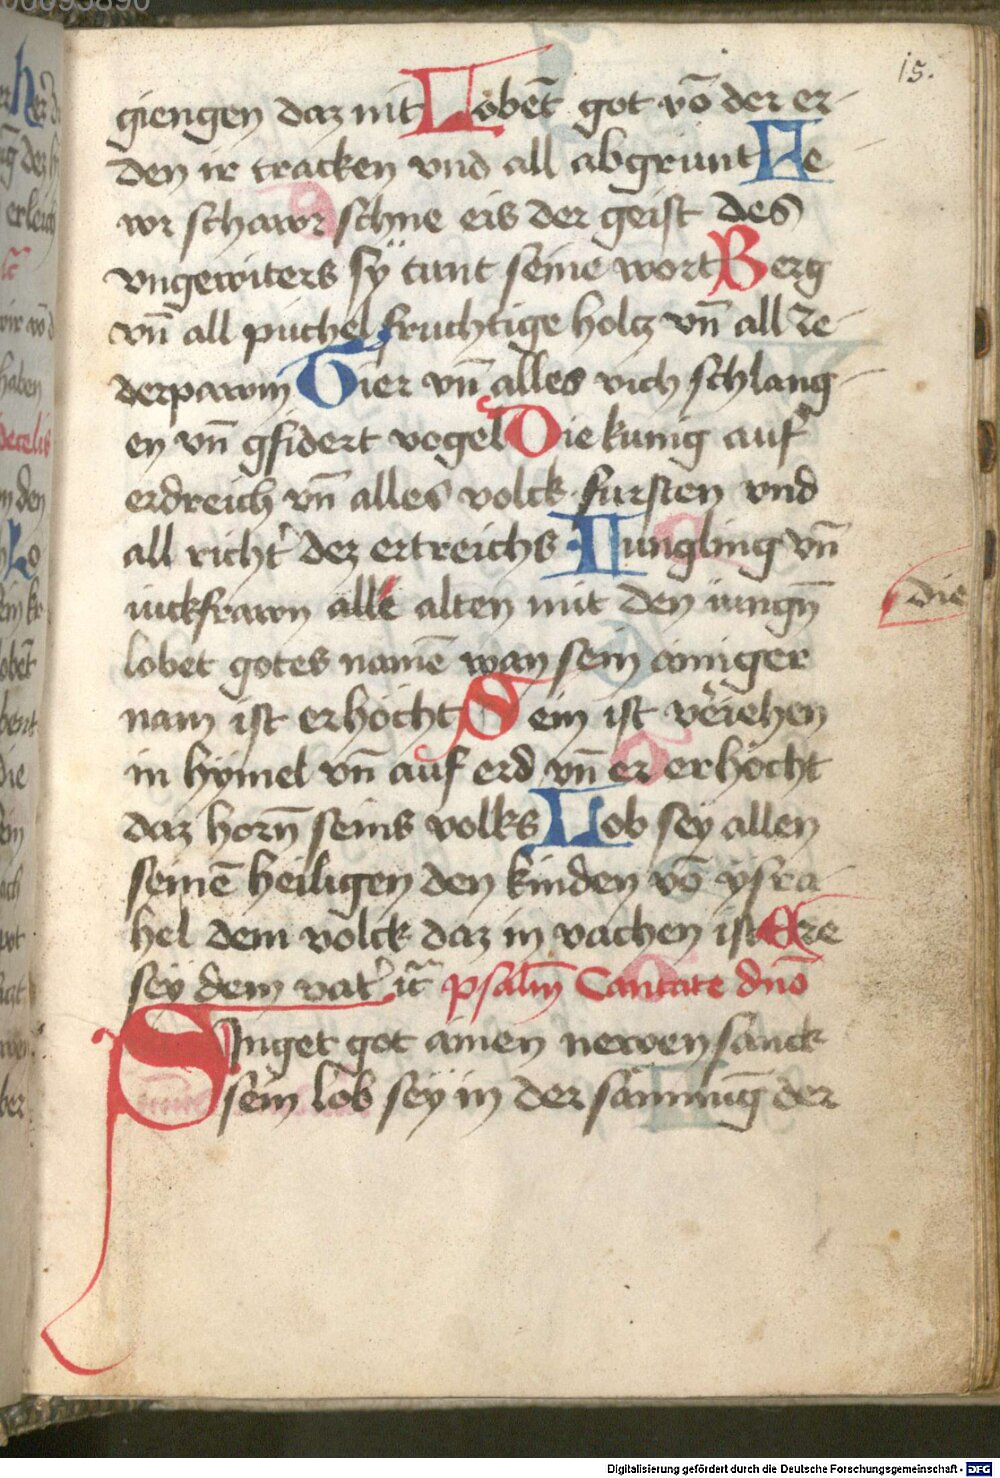 15.
giengen daz nit Lobēt got vō der er-
den ir tracken vnd all abgrunt Fe
wr schawr schne eis der geist des
vngewiters sÿ tunt seine wort Berg
vn̄ all puchel fruchtige holtz vn̄ all ze-
derpawm Tier vn̄ alles vich schlang-
en vn̄ gfidert vogel Die kunig auf
erdreich vn̄ alles volck fursten vnd
all richt' dez ertreichs Jungling vn̄
iuckfrawn alle alten mit den iungn̄
die
lobet gotes namē wan sein ainiger
nam ist erhöcht Sein ist veriehen
in hymel vn̄ auf erd vn̄ er erhöcht
daz horn̄ seins volks Lob sey allen
seinē heiligen den kinden vō ysra-
hel dem volck daz im nachen ist Ere
sey dem vat' ꝛc psalm̄ Cantate dn̄o
Singet got ainen newen sanck
sein lob sey in der samnūg der
Digitalisierung gefördert durch die Deutsche Forschungsgemeinschaft - DFG